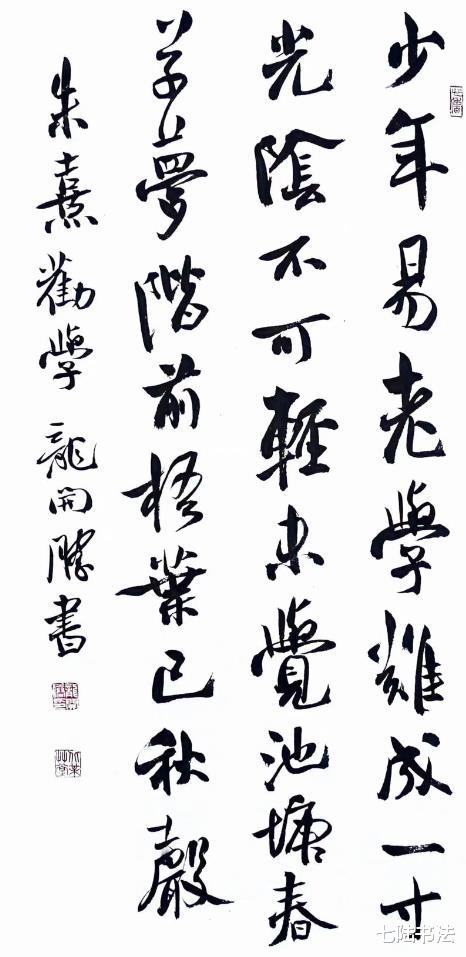 少年易老學難成一寸
光陰不可輕未覺池塘春
草夢階前梧葉已秋聲
朱熹勸學 龍開勝書
七陆书法